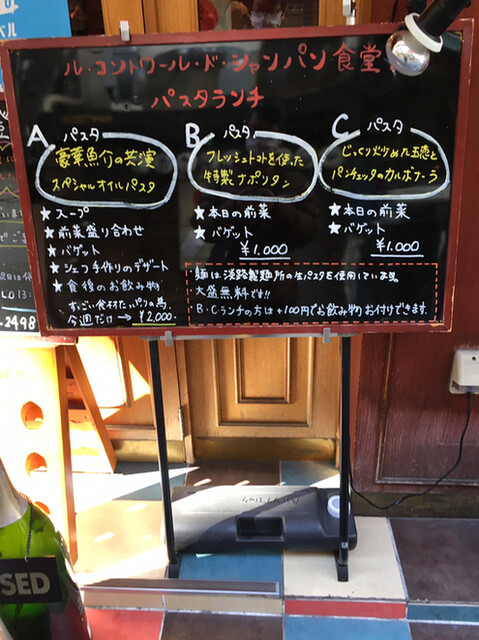 ル・コントワール・ド・シャンパン食堂
パスタランチ
A パスタ
豪華魚介の共演
スペシャルオイルパスタ
★スープ
★前菜盛り合わせ
★バゲット
★シェフ手作りのデザート
★食後のお飲み物
すっごい食材たっぷりの為
今週だけ→ ¥2,000.
B パスタ
フレッシュトマトを使った
特製ナポリタン
★本日の前菜
★バゲット
¥1,000
C パスタ
じっくり炒めた玉葱と
パンチェッタのカルボナーラ
★本日の前菜
★バゲット
¥1,000
・麺は淡路製麺所の生パスタを使用しています。
大盛無料です!!
B・Cランチの方は+100円でお飲み物お付けできます。
-2498
SED